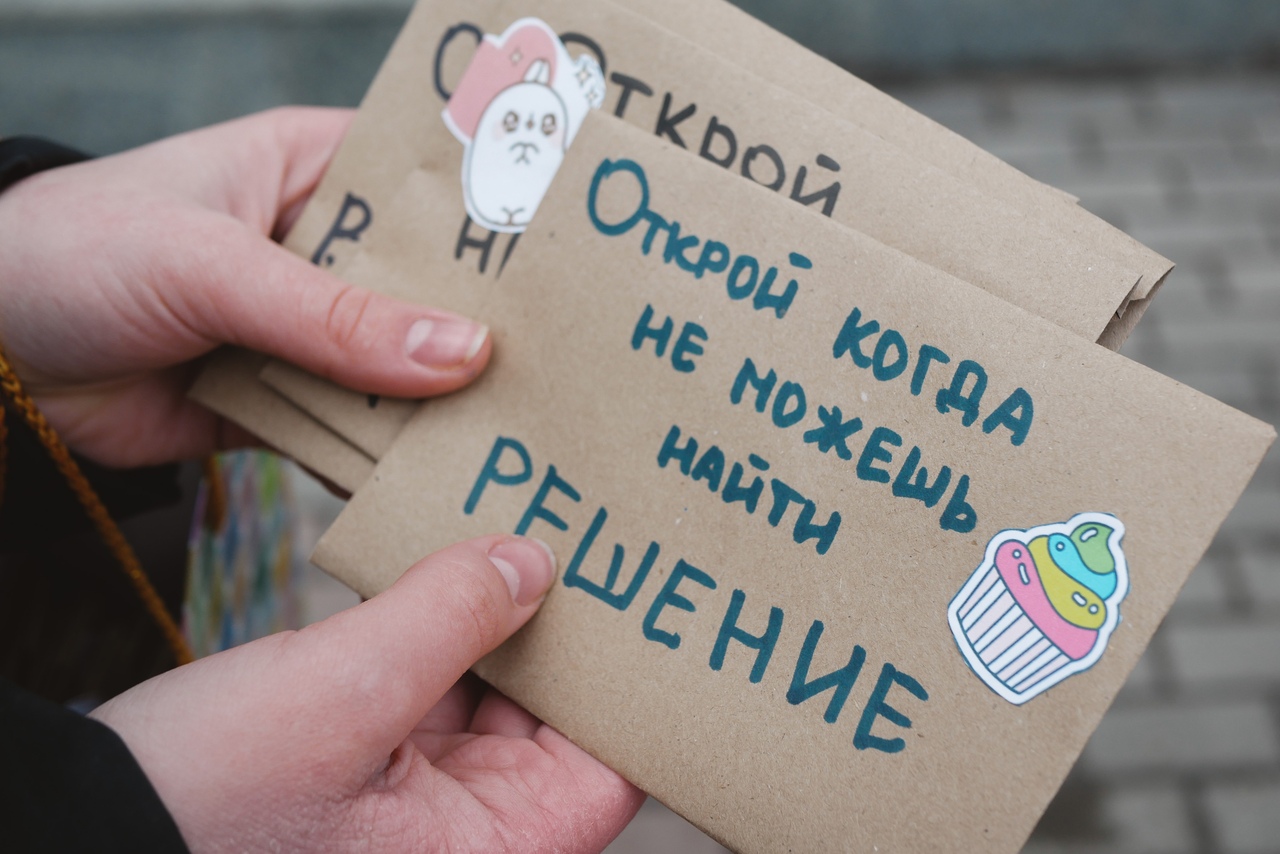 Открой
Открой когда
не можешь
найти
РЕШЕНИЕ